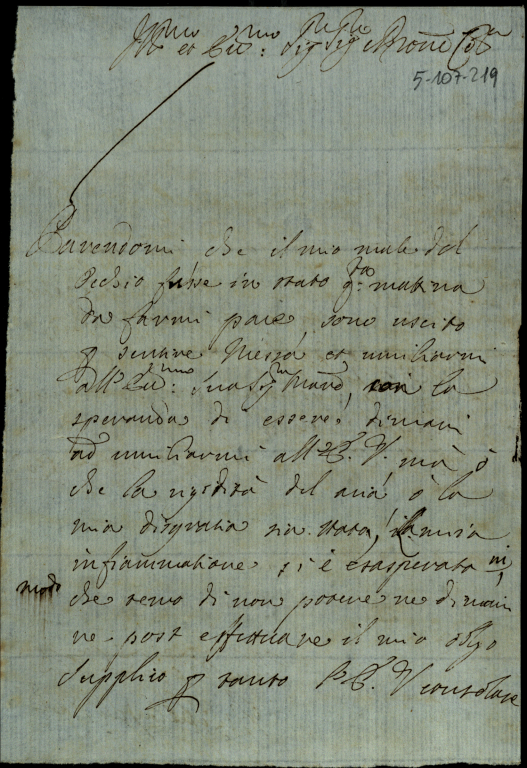 Ill.mo et Ecc.mo Sig.r Sig.r Prone Col.mo
5-107-219
Parendomi che il mio male del
Occhio fusse in stato q.ta matina
da farmi pace, sono uscito
p sentire Messa et umiliarmi
all' Ecc.ma Sua Sig.ra Madre, con la
speranza di essere dimani
ad umiliarmi all' E. V. mà ò
che la rigidità del aria ò la
mia disgratia sia stata, la mia
infiammatione si è esasperata in
modo che temo di non potere ne dimani
ne post effettuare il mio obligo
supplico p tanto l' E. V. consolare